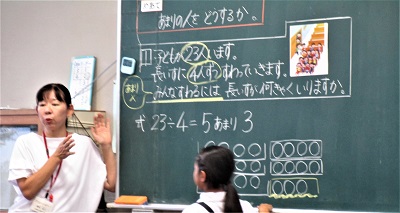 あまりの人を どうするか。
1 子どもが 23人います。
長いすに 4人ずつ すわっていきます。
みんなすわるには 長いすが何きゃくいりますか。
あまり
人
式 23÷4=5あまり3